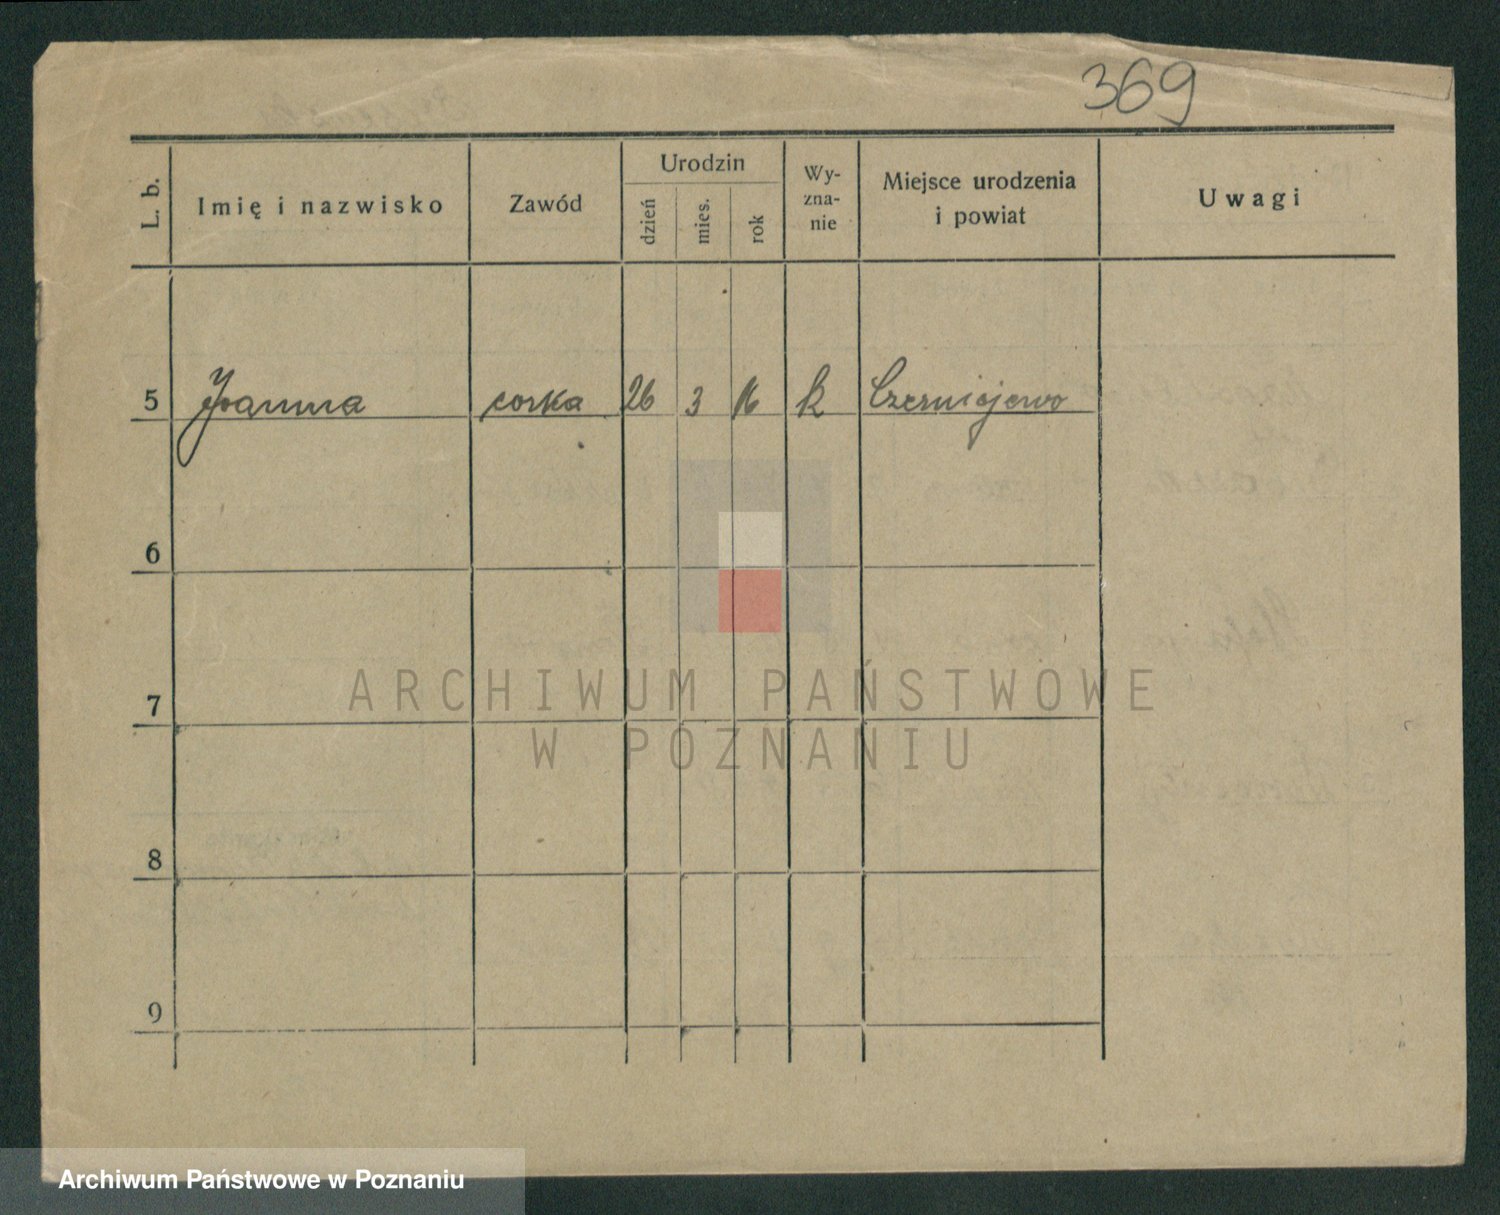 369
L. b. Imię i nazwisko Zawód Urodzin dzień mies. rok Wy-zna-nie Miejsce urodzenia i powiat Uwagi
5 Joanna corka 26 3 16 k Czerniejewo
6
7
8
9
ARCHIWUM PAŃSTWOWE
W POZNANIU
Archiwum Państwowe w Poznaniu